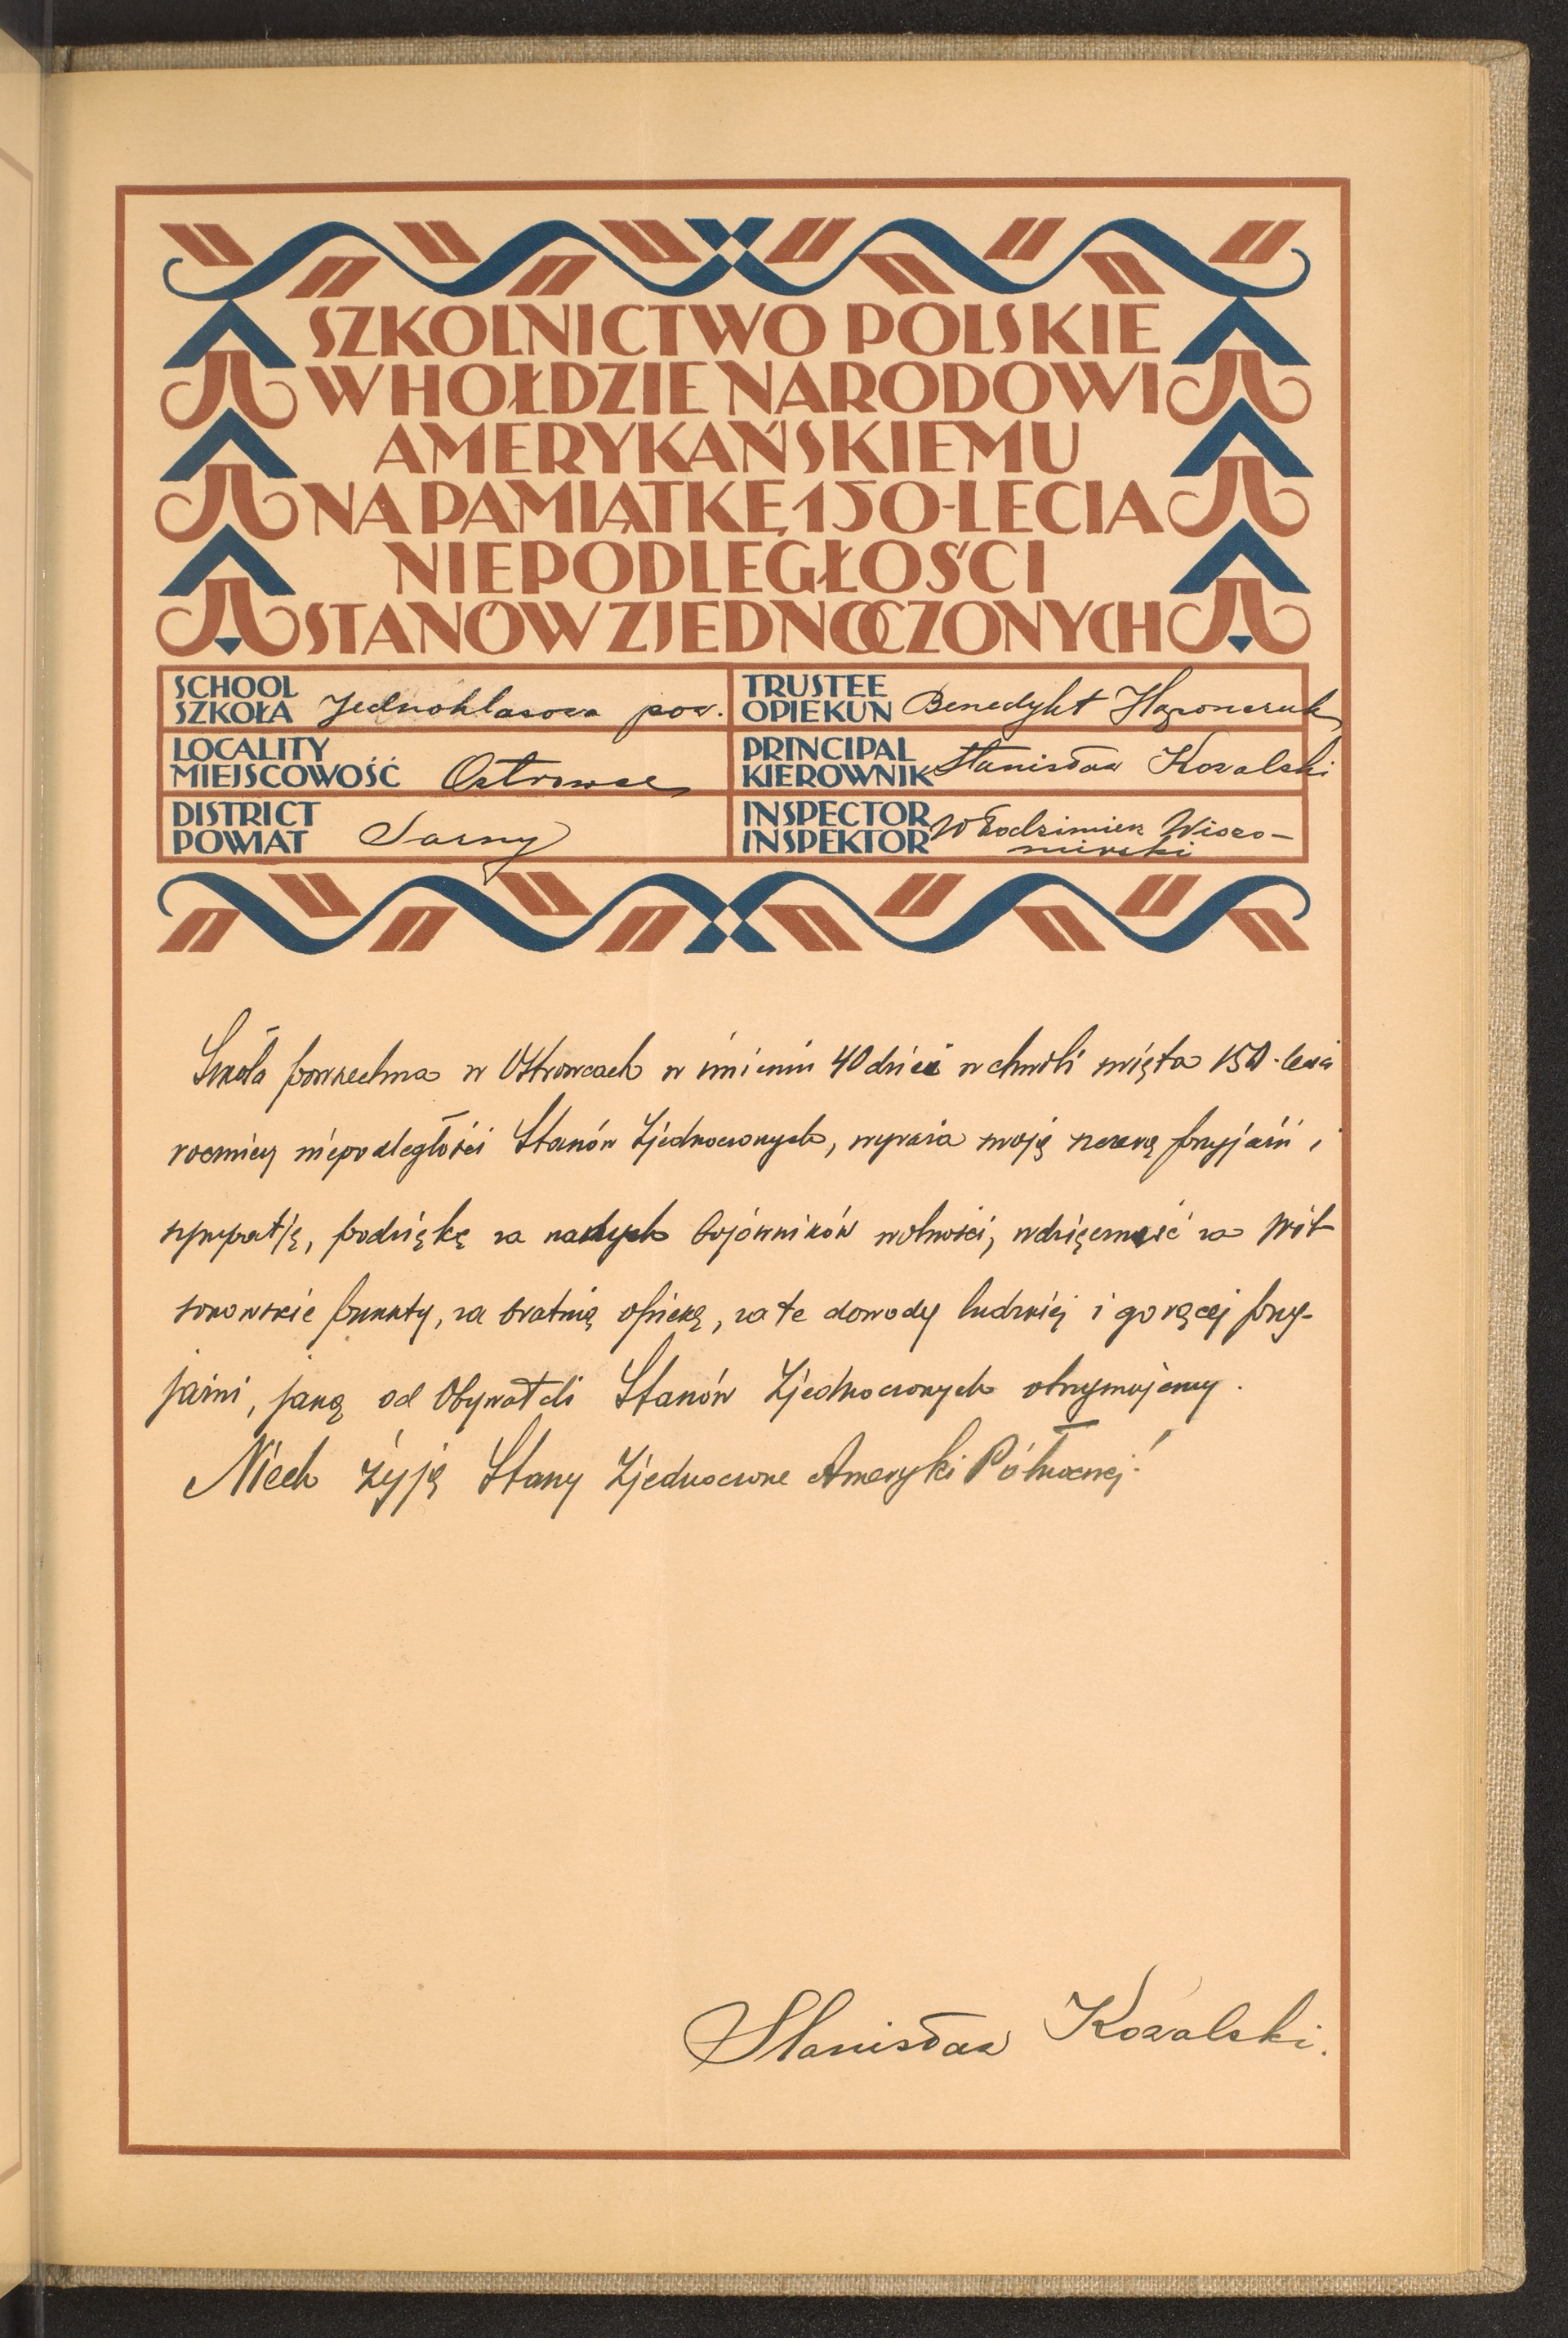 SZKOLNICTWO POLSKIE
W HOŁDZIE NARODOWI
AMERYKAŃSKIEMU
NA PAMIĄTKĘ 150-LECIA
NIEPODLEGŁOŚCI
STANÓW ZJEDNOCZONYCH
SCHOOL
SZKOŁA Jednoklasowa pow.
TRUSTEE
OPIEKUN Benedykt Haponczuk
LOCALITY
MIEJSCOWOŚĆ Ostrowce
PRINCIPAL
KIEROWNIK Stanisław Kowalski
DISTRICT
POWIAT Sarny
INSPECTOR
INSPEKTOR Włodzimierz
Szkoła powszechna w Ostrowcach w imieniu 40 dzieci w chwili święta 150-lecia
rocznicy niepodległości Stanów Zjednoczonych, wyraża swoją szczerą przyjaźń i
sympatję, podziękę za naszych bojowników wolności, wdzięczność za Wil-
sonowskie punkty, za bratnią opiekę, za te dowody ludzkiej i gorącej przy-
jaźni, jaką od Obywateli Stanów Zjednoczonych otrzymujemy.
Niech żyją Stany Zjednoczone Ameryki Północnej!
Stanisław Kowalski.